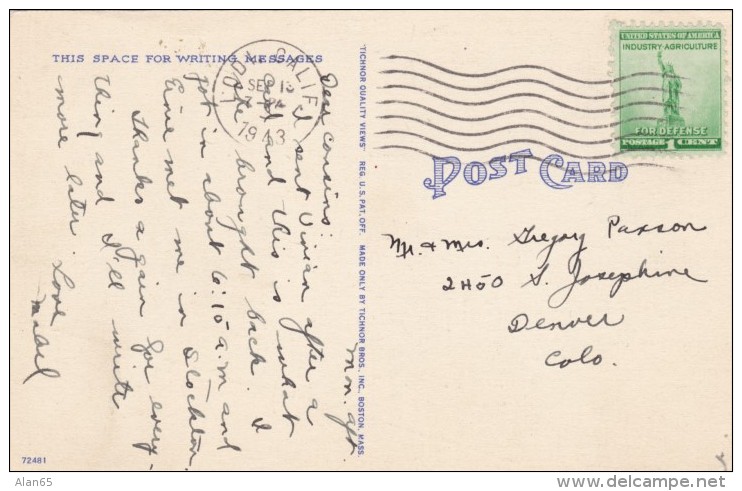 THIS SPACE FOR WRITING MESSAGES
Mon. aft.
Dear cousins:
I sent Vivian after a
card and this is what
she brought back. I
got in about 6:15 a.m and
Gene met me in Stockton.
Thanks again for every-
thing and I'll write
more later. Love
Mabel
72481
"TICHNOR QUALITY VIEWS" REG. U.S. PAT. OFF. MADE ONLY BY TICHNOR BROS., INC., BOSTON, MASS.
LODI CALIF.
SEP 13
1943
UNITED STATES OF AMERICA
INDUSTRY·AGRICULTURE
FOR DEFENSE
POSTAGE 1 CENT
POST CARD
Mr. & Mrs. Gregory Paxson
2450 S. Josephine
Denver
Colo.
Alan65
www.delcampe.net